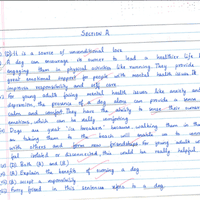 Section A
It is a source of unconditional love
A dog can encourage its owner to lead a healthier life by
engaging them in physical activities like running. They provide
great emotional support for people with mental health issues. It
improves responsibility and self care.
For young adults facing mental health issues like anxiety and
depression, the presence of a dog along can provide a sense
calm and comfort. They have the ability to sense their owner's
emotions, which can be really comforting.
Dogs are great "ice breakers" because walking them in the
or taking them to the beach will enable us to
with others and form new friendships. For young adults who
feel isolated or disconnected, this could be really helpful.
(D) Both (A) and (B)
(A) Explain the benefits of owning a dog
(A) accept a responsibility
Furry friend in this sentence refers to a dog.